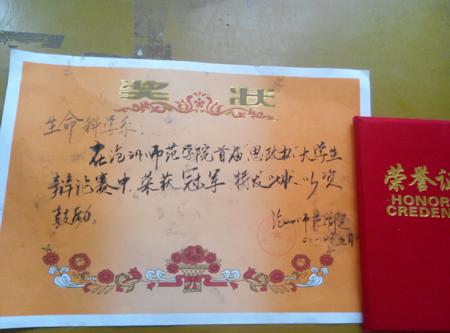 奖状
生命科学系：
在沧州师范学院首届“思政杯”大学生
辩论赛中,荣获冠军 特发此状以资
鼓励。
沧州师范学院
荣誉证
HONOR
CREDEN